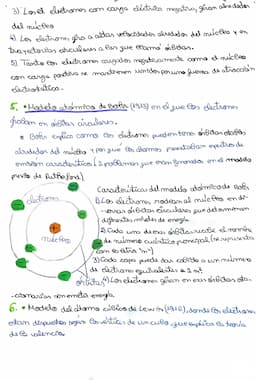 3) Los electrones con carga eléctrica negativa, giran alrededor
del núcleo
4) Los electrones gira a altas velocidades alrededor del núcleo y en
trayectorias circulares a las que llamó órbitas.
5) Tanto los electrones cargados negativamente como el núcleo
con carga positiva se mantienen unidos por una fuerza de atracción
electrostática.
5. • Modelo atómico de Bohr (1913) en el que los electrones
giraban en órbitas circulares.
• Bohr explica como los electrones pueden tener órbitas estables
alrededor del núcleo y por qué los átomos presentaban espectros de
emisión característicos (2 problemas que eran ignorados en el modelo
previo de Rutherford)
Características del modelo atómico de Bohr
electrones
núcleo
órbitas
1) Los electrones rodean al núcleo en di-
versas órbitas circulares que determinan
diferentes niveles de energía
2) Cada una de esas órbitas recibe el nombre
de número cuántico principal (se representa
con la letra "n")
3) Cada capa puede dar cabida a un número
de electrones equivalentes a 2n²
4) Los electrones giran en esas órbitas sta-
cionarias sin emitir energía
6. • Modelo del átomo cúbico de Lewis (1916), donde los electrones
están dispuestos según los vértices de un cubo, que explica la teoría
de la valencia.